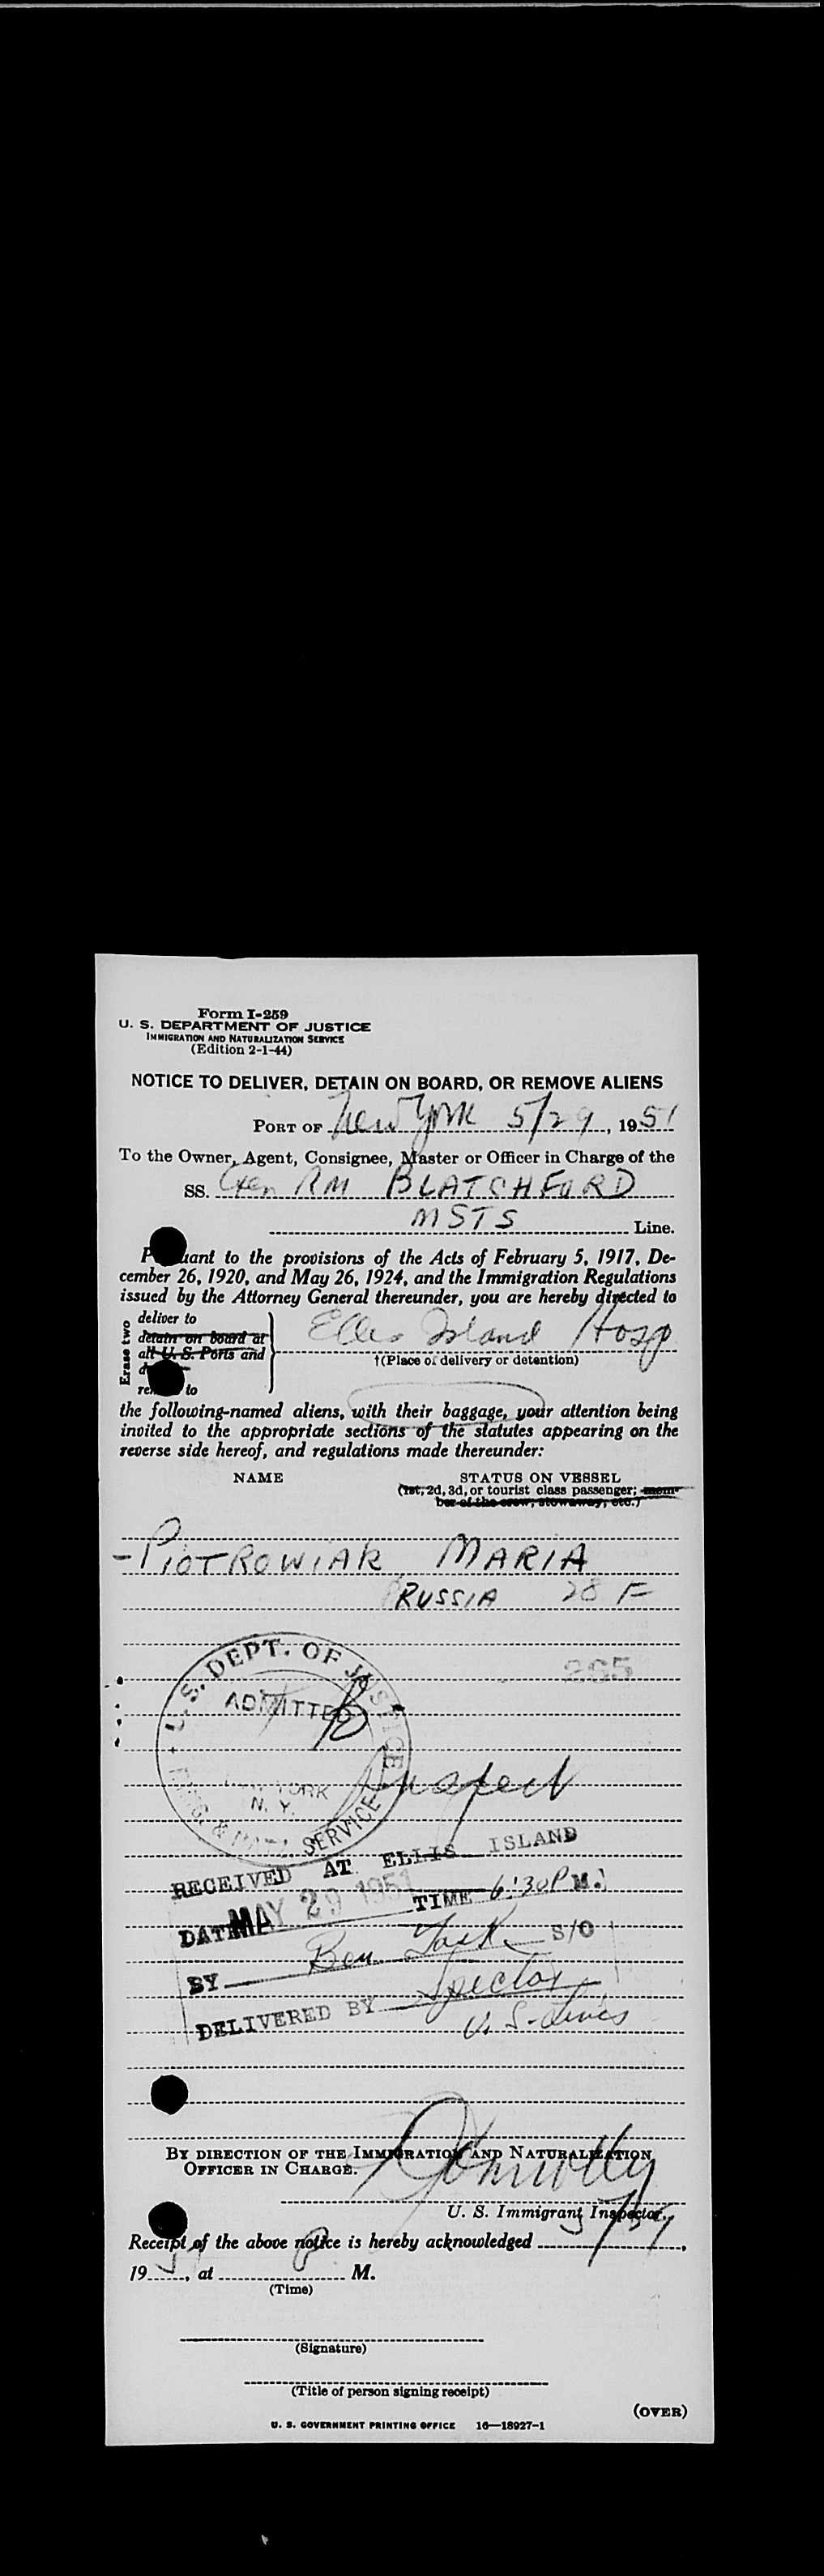 Form I-259
U. S. DEPARTMENT OF JUSTICE
IMMIGRATION AND NATURALIZATION SERVICE
(Edition 2-1-44)
NOTICE TO DELIVER, DETAIN ON BOARD, OR REMOVE ALIENS
PORT OF New York 5/29, 1951
To the Owner, Agent, Consignee, Master or Officer in Charge of the
SS. Gen RM BLATCHFORD
MSTS Line.
to the provisions of the Acts of February 5, 1917, De-
cember 26, 1920, and May 26, 1924, and the Immigration Regulations
issued by the Attorney General thereunder, you are hereby directed to
Erase two
deliver to
detain on board at
all U. S. Ports and
to
Ellis Island Hosp
†(Place of delivery or detention)
the following-named aliens, with their baggage, your attention being
invited to the appropriate sections of the statutes appearing on the
reverse side hereof, and regulations made thereunder:
NAME STATUS ON VESSEL
(1st, 2d, 3d, or tourist class passenger; mem-
ber of the crew; stowaway, etc.)
-PIOTROWIAK MARIA
RUSSIA 28 F
265
U.S. DEPT. OF JUSTICE
ADMITTED
YORK
N. Y.
SERVICE
RECEIVED AT ELLIS ISLAND
DATE MAY 29 1951 TIME 6:30 P M.
BY Ben S/O
DELIVERED BY Spector
U. S. Lines
BY DIRECTION OF THE IMMIGRATION AND NATURALIZATION
OFFICER IN CHARGE.
U. S. Immigrant Inspector.
Receipt of the above notice is hereby acknowledged
19 51, at P M.
(Time)
(Signature)
(Title of person signing receipt)
(OVER)
U. S. GOVERNMENT PRINTING OFFICE 16—18927-1